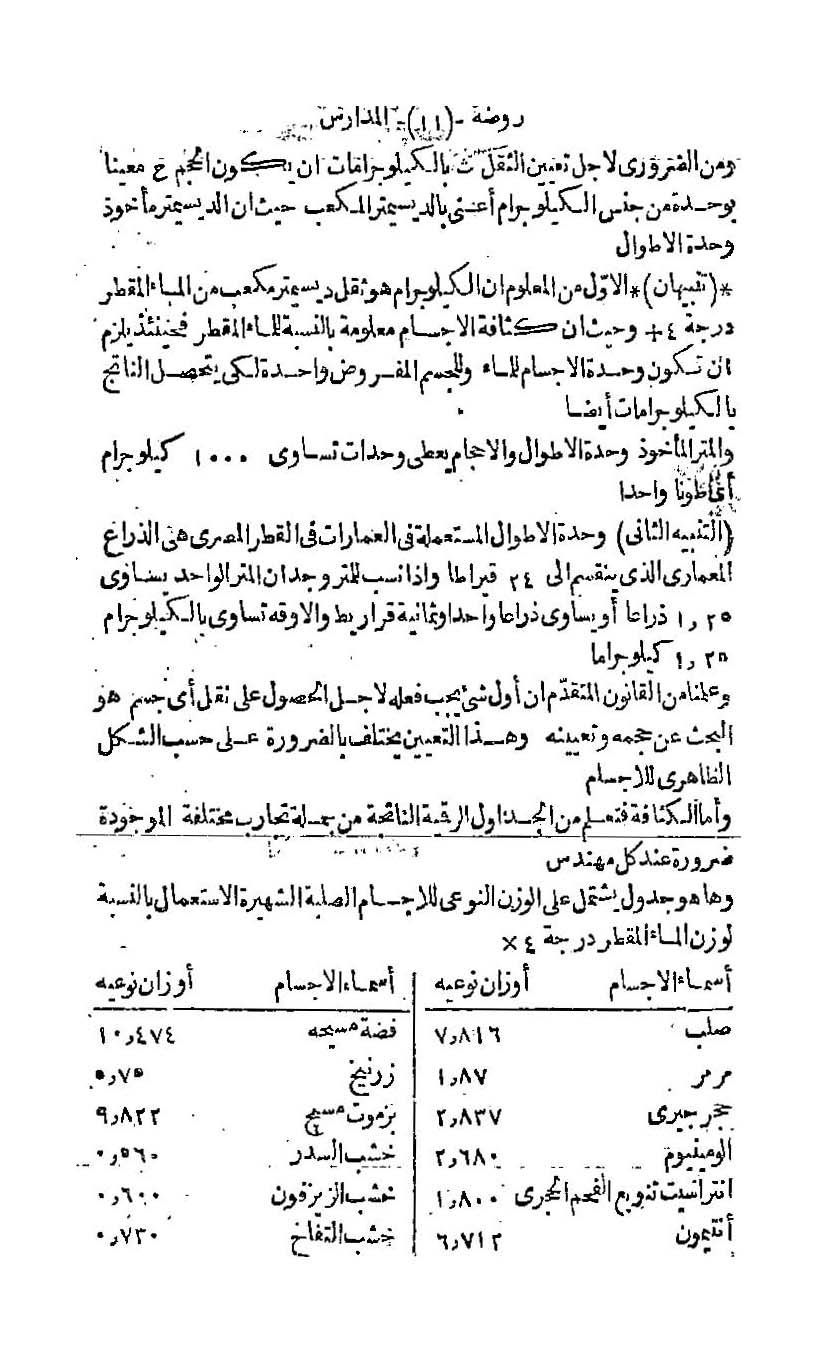 روضة -(١١)- المدارس
ومن الضرورى لاجل تعيين الثقل ث بالكيلوجرامات ان يكون الحجم ح معينا
بوحدة من جنس الكيلوجرام أعنى بالديسيمتر المكعب حيث ان الديسيمتر مأخوذ
وحدة الاطوال
*(تنبيهان)* الاوّل من المعلوم ان الكيلوجرام هو ثقل ديسيمتر مكعب من الماء المقطر
درجة ٤+ وحيث ان كثافة الاجسام معلومة بالنسبة للماء المقطر فحينئذ يلزم
ان تكون وحدة الاجسام للماء وللجسم المفروض واحدة لكى يتحصل الناتج
بالكيلوجرامات أيضا
والمتر المأخوذ وحدة الاطوال والاحجام يعطى وحدات تساوى ١٠٠٠ كيلوجرام
واحدا
(التنبيه الثانى) وحدة الاطوال المستعملة فى العمارات فى القطر المصرى هى الذراع
المعمارى الذى ينقسم الى ٢٤ قيراطا واذا نسب للمتر وجد ان المتر الواحد يساوى
١٫٢٥ ذراعا أو يساوى ذراعا واحدا وثمانية قراريط والاوقه تساوى بالكيلوجرام
١٫٢٥ كيلوجراما
وعلمنا من القانون المتقدّم ان أول شئ يجب فعله لاجل الحصول على ثقل أى جسم هو
البحث عن حجمه وتعيينه وهذا التعيين يختلف بالضرورة على حسب الشكل
الظاهرى للاجسام
وأما الكثافة فتعلم من الجداول الرقية الناتجة من جملة تجارب مختلفة الموجودة
ضرورة عند كل مهندس
وها هو جدول يشتمل على الوزن النوعى للاجسام الصلبة الشهيرة الاستعمال بالنسبة
لوزن الماء المقطر درجة ٤×
أسماء الاجسام أوزان نوعيه أسماء الاجسام أوزان نوعيه
صلب ٧٫٨١٦ فضة مسيحه ١٠٫٤٧٤
مرمر ١٫٨٧ زرنيخ ٥٫٧٥
حجر جيرى ٢٫٨٣٧ بزموت مسيح ٩٫٨٢٢
الومينيوم ٢٫٦٨٠ خشب السدر ٠٫٥٦٠
انتراسيت تنويع الفحم الحجرى ١٫٨٠٠ خشب الزيزفون ٠٫٦٠٠
أنتيمون ٦٫٧١٢ خشب التفاخ ٠٫٧٣٠